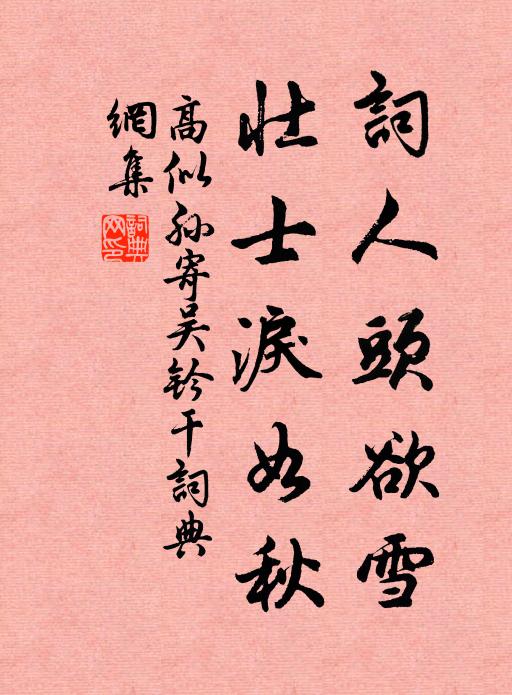 詞人頭欲雪
壯士淚如秋
高似孫寄吴鈐干詞典
網集
詞典網印